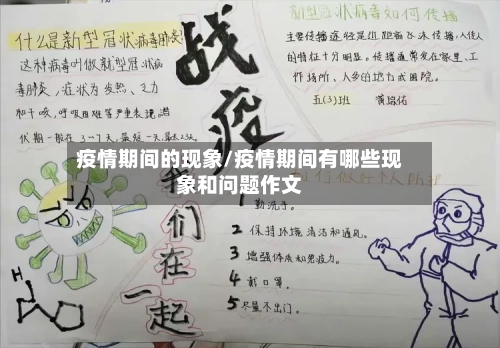 什么是新型冠状病毒肺炎
这种病毒叫做新型冠状病
毒肺炎，症状为发热、乏力
和干咳，呼吸困难等严重表现潜
伏期一般在3一7天，最短一天，最长
战疫
我们在一起
新型冠状病毒如何传播
主要传播途径是近距离飞沫传播，人传人
的特征十分明显。传播通常发生在家里、工
作场所、人多的地方或医院。
五(3)班
疫情期间的现象/疫情期间有哪些现
象和问题作文
何做好个人防护
勤洗手。
2 保持环境清洁和通风。
3 增强体质和免疫力。
4 戴口罩。
5 尽量不出门。
H